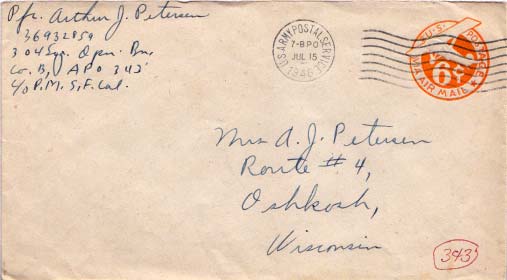 Pfc. Arthur J. Petersen
36932859
304 Sig. Oper. Bn.
Co. B, APO 343
c/o P.M. S.F. Cal.
U.S. ARMY POSTAL SERVICE
7-BPO
JUL 15
1946
U.S. POSTAGE
6¢
AIR MAIL
Mrs A. J. Petersen
Route # 4,
Oshkosh,
Wisconsin
343